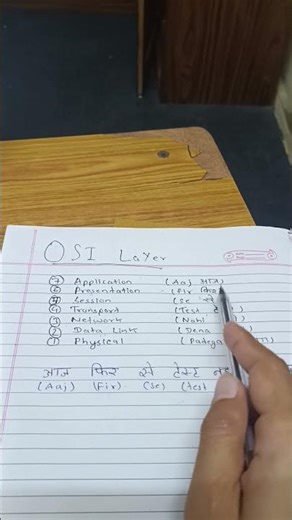 OSI Layer
⑦ Application (Aaj आज)
⑥ Presentation (Fir
Session (Se से
④ Transport (Test
③ Network (Nahi
② Data Link (Dena
① Physical (Padega
आज फिर से टेस्ट
(Aaj) (Fir) (Se) (test